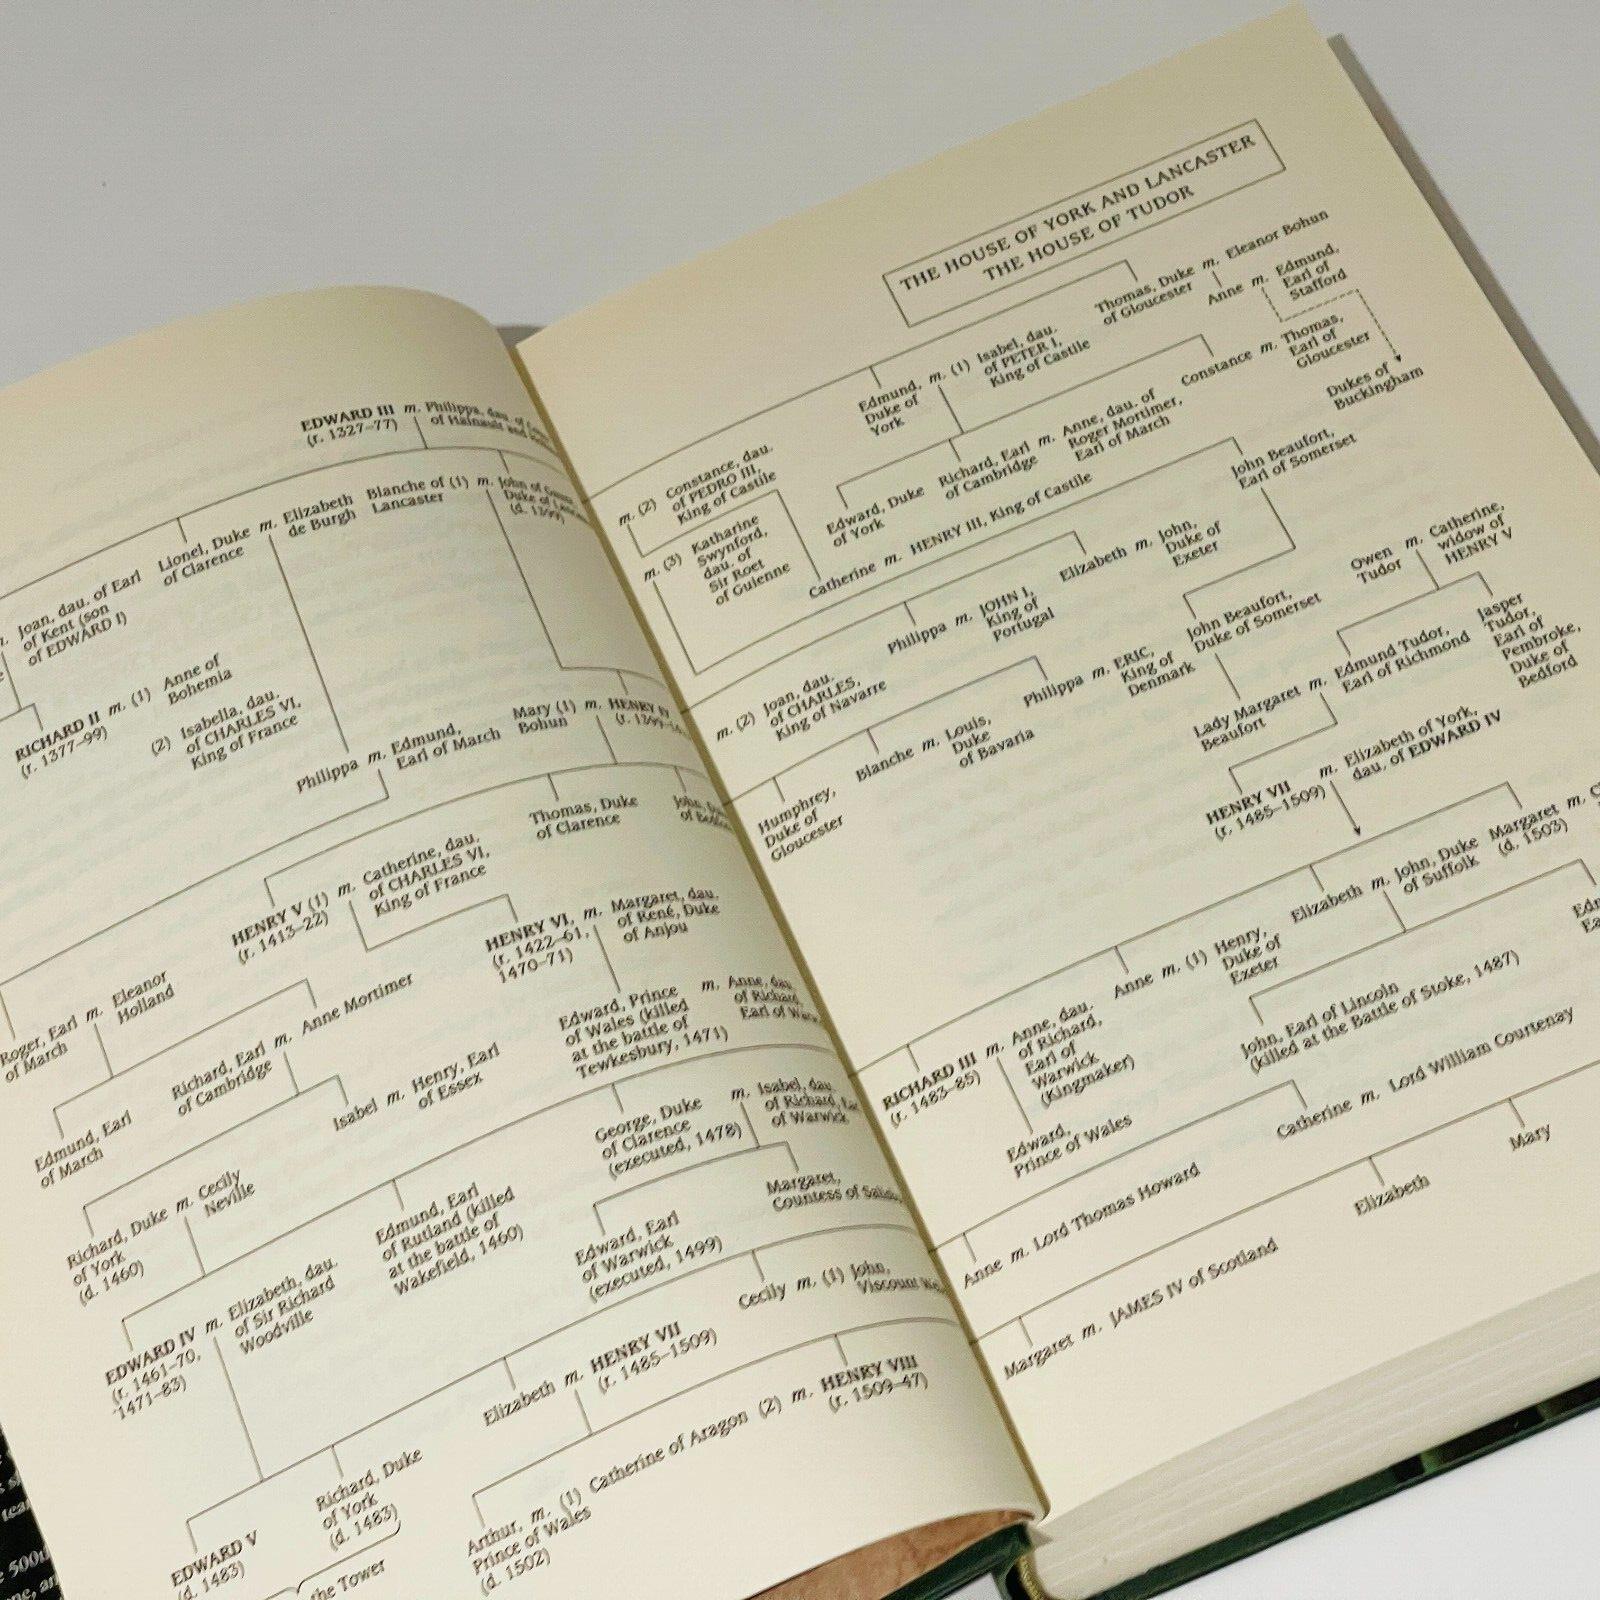 THE HOUSE OF YORK AND LANCASTER
THE HOUSE OF TUDOR
EDWARD III m. Philippa, dau. of
(r. 1327–77) of Hainault and
Joan, dau. of Earl
of Kent (son
of EDWARD I)
Lionel, Duke m. Elizabeth
of Clarence de Burgh
Blanche of (1) m. John of Gaunt
Lancaster Duke of
(d. 1399)
RICHARD II m. (1) Anne of
(r. 1377–99) Bohemia
(2) Isabella, dau.
of CHARLES VI,
King of France
Philippa m. Edmund,
Earl of March
Mary (1) m. HENRY IV
Bohun (r. 1399–
HENRY V (1) m. Catherine, dau.
(r. 1413–22) of CHARLES VI,
King of France
Thomas, Duke
of Clarence
John,
HENRY VI, m. Margaret, dau.
(r. 1422–61, of René, Duke
1470–71) of Anjou
Roger, Earl m. Eleanor
of March Holland
Richard, Earl m. Anne Mortimer
of Cambridge
Edward, Prince m. Anne, dau.
of Wales (killed of Richard,
at the battle of Earl of
Tewkesbury, 1471)
Edmund, Earl
of March
Isabel m. Henry, Earl
of Essex
George, Duke m. Isabel, dau.
of Clarence of Richard,
(executed, 1478) of Warwick
Richard, Duke m. Cecily
of York Neville
(d. 1460)
Edmund, Earl
of Rutland (killed
at the battle of
Wakefield, 1460)
Edward, Earl
of Warwick
(executed, 1499)
Margaret,
Countess of
EDWARD IV m. Elizabeth, dau.
(r. 1461–70, of Sir Richard
1471–83) Woodville
Elizabeth m. HENRY VII
(r. 1485–1509)
Cecily m. (1) John,
Viscount
EDWARD V
(d. 1483)
Richard, Duke
of York
(d. 1483)
the Tower
Arthur, m. (1) Catherine of Aragon (2) m. HENRY VIII
Prince of Wales (r. 1509–47)
(d. 1502)
Thomas, Duke m. Eleanor Bohun
of Gloucester
Anne m. Edmund,
Earl of
Stafford
Edmund, m. (1) Isabel, dau.
Duke of of PETER I,
York King of Castile
Constance m. Thomas,
Earl of
Gloucester
Dukes of
Buckingham
m. (2) Constance, dau.
of PEDRO III,
King of Castile
m. (3) Katharine
Swynford,
dau. of
Sir Roet
of Guienne
Edward, Duke
of York
Richard, Earl m. Anne, dau. of
of Cambridge Roger Mortimer,
Earl of March
Catherine m. HENRY III, King of Castile
John Beaufort,
Earl of Somerset
Philippa m. JOHN I,
King of
Portugal
Elizabeth m. John,
Duke of
Exeter
John Beaufort,
Duke of Somerset
Owen m. Catherine,
Tudor widow of
HENRY V
m. (2) Joan, dau.
of CHARLES,
King of Navarre
Philippa m. ERIC,
King of
Denmark
Lady Margaret m. Edmund Tudor,
Beaufort Earl of Richmond
Jasper
Tudor,
Earl of
Pembroke,
Duke of
Bedford
Humphrey,
Duke of
Gloucester
Blanche m. Louis,
Duke
of Bavaria
HENRY VII m. Elizabeth of York,
(r. 1485–1509) dau. of EDWARD IV
RICHARD III m. Anne, dau.
(r. 1483–85) of Richard,
Earl of
Warwick
(Kingmaker)
Anne m. (1) Henry,
Duke of
Exeter
Elizabeth m. John, Duke
of Suffolk
Margaret m.
(d. 1503)
Edward,
Prince of Wales
John, Earl of Lincoln
(killed at the Battle of Stoke, 1487)
Anne m. Lord Thomas Howard
Catherine m. Lord William Courtenay
Margaret m. JAMES IV of Scotland
Elizabeth
Mary